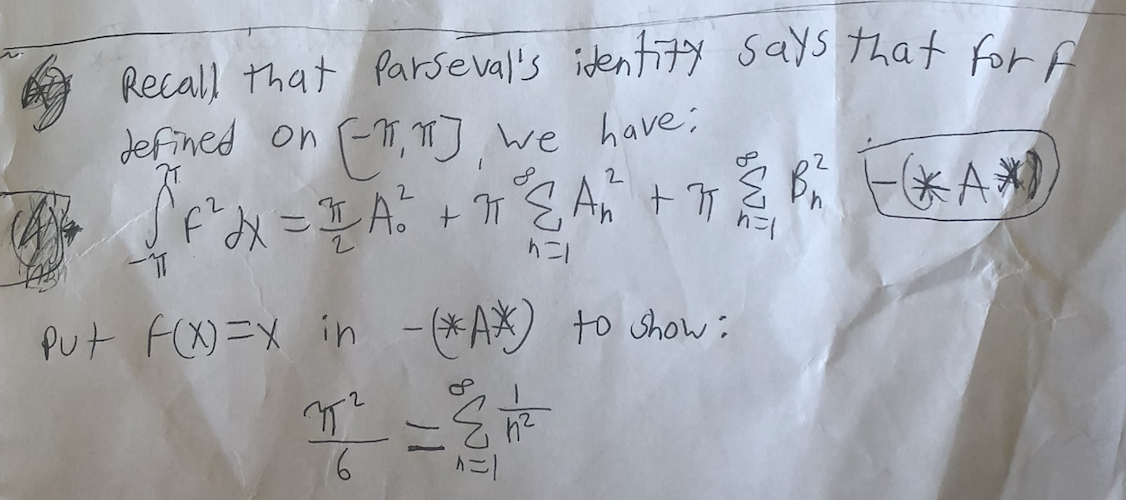 Recall that Parseval's identity says that for f
defined on [-π, π], we have:
(4) ∫_{-π}^{π} f² dx = π/2 A₀² + π ∑_{n=1}^{∞} Aₙ² + π ∑_{n=1}^{∞} Bₙ² -(*A*)
Put f(x)=x in -(*A*) to show:
π²/6 = ∑_{n=1}^{∞} 1/n²